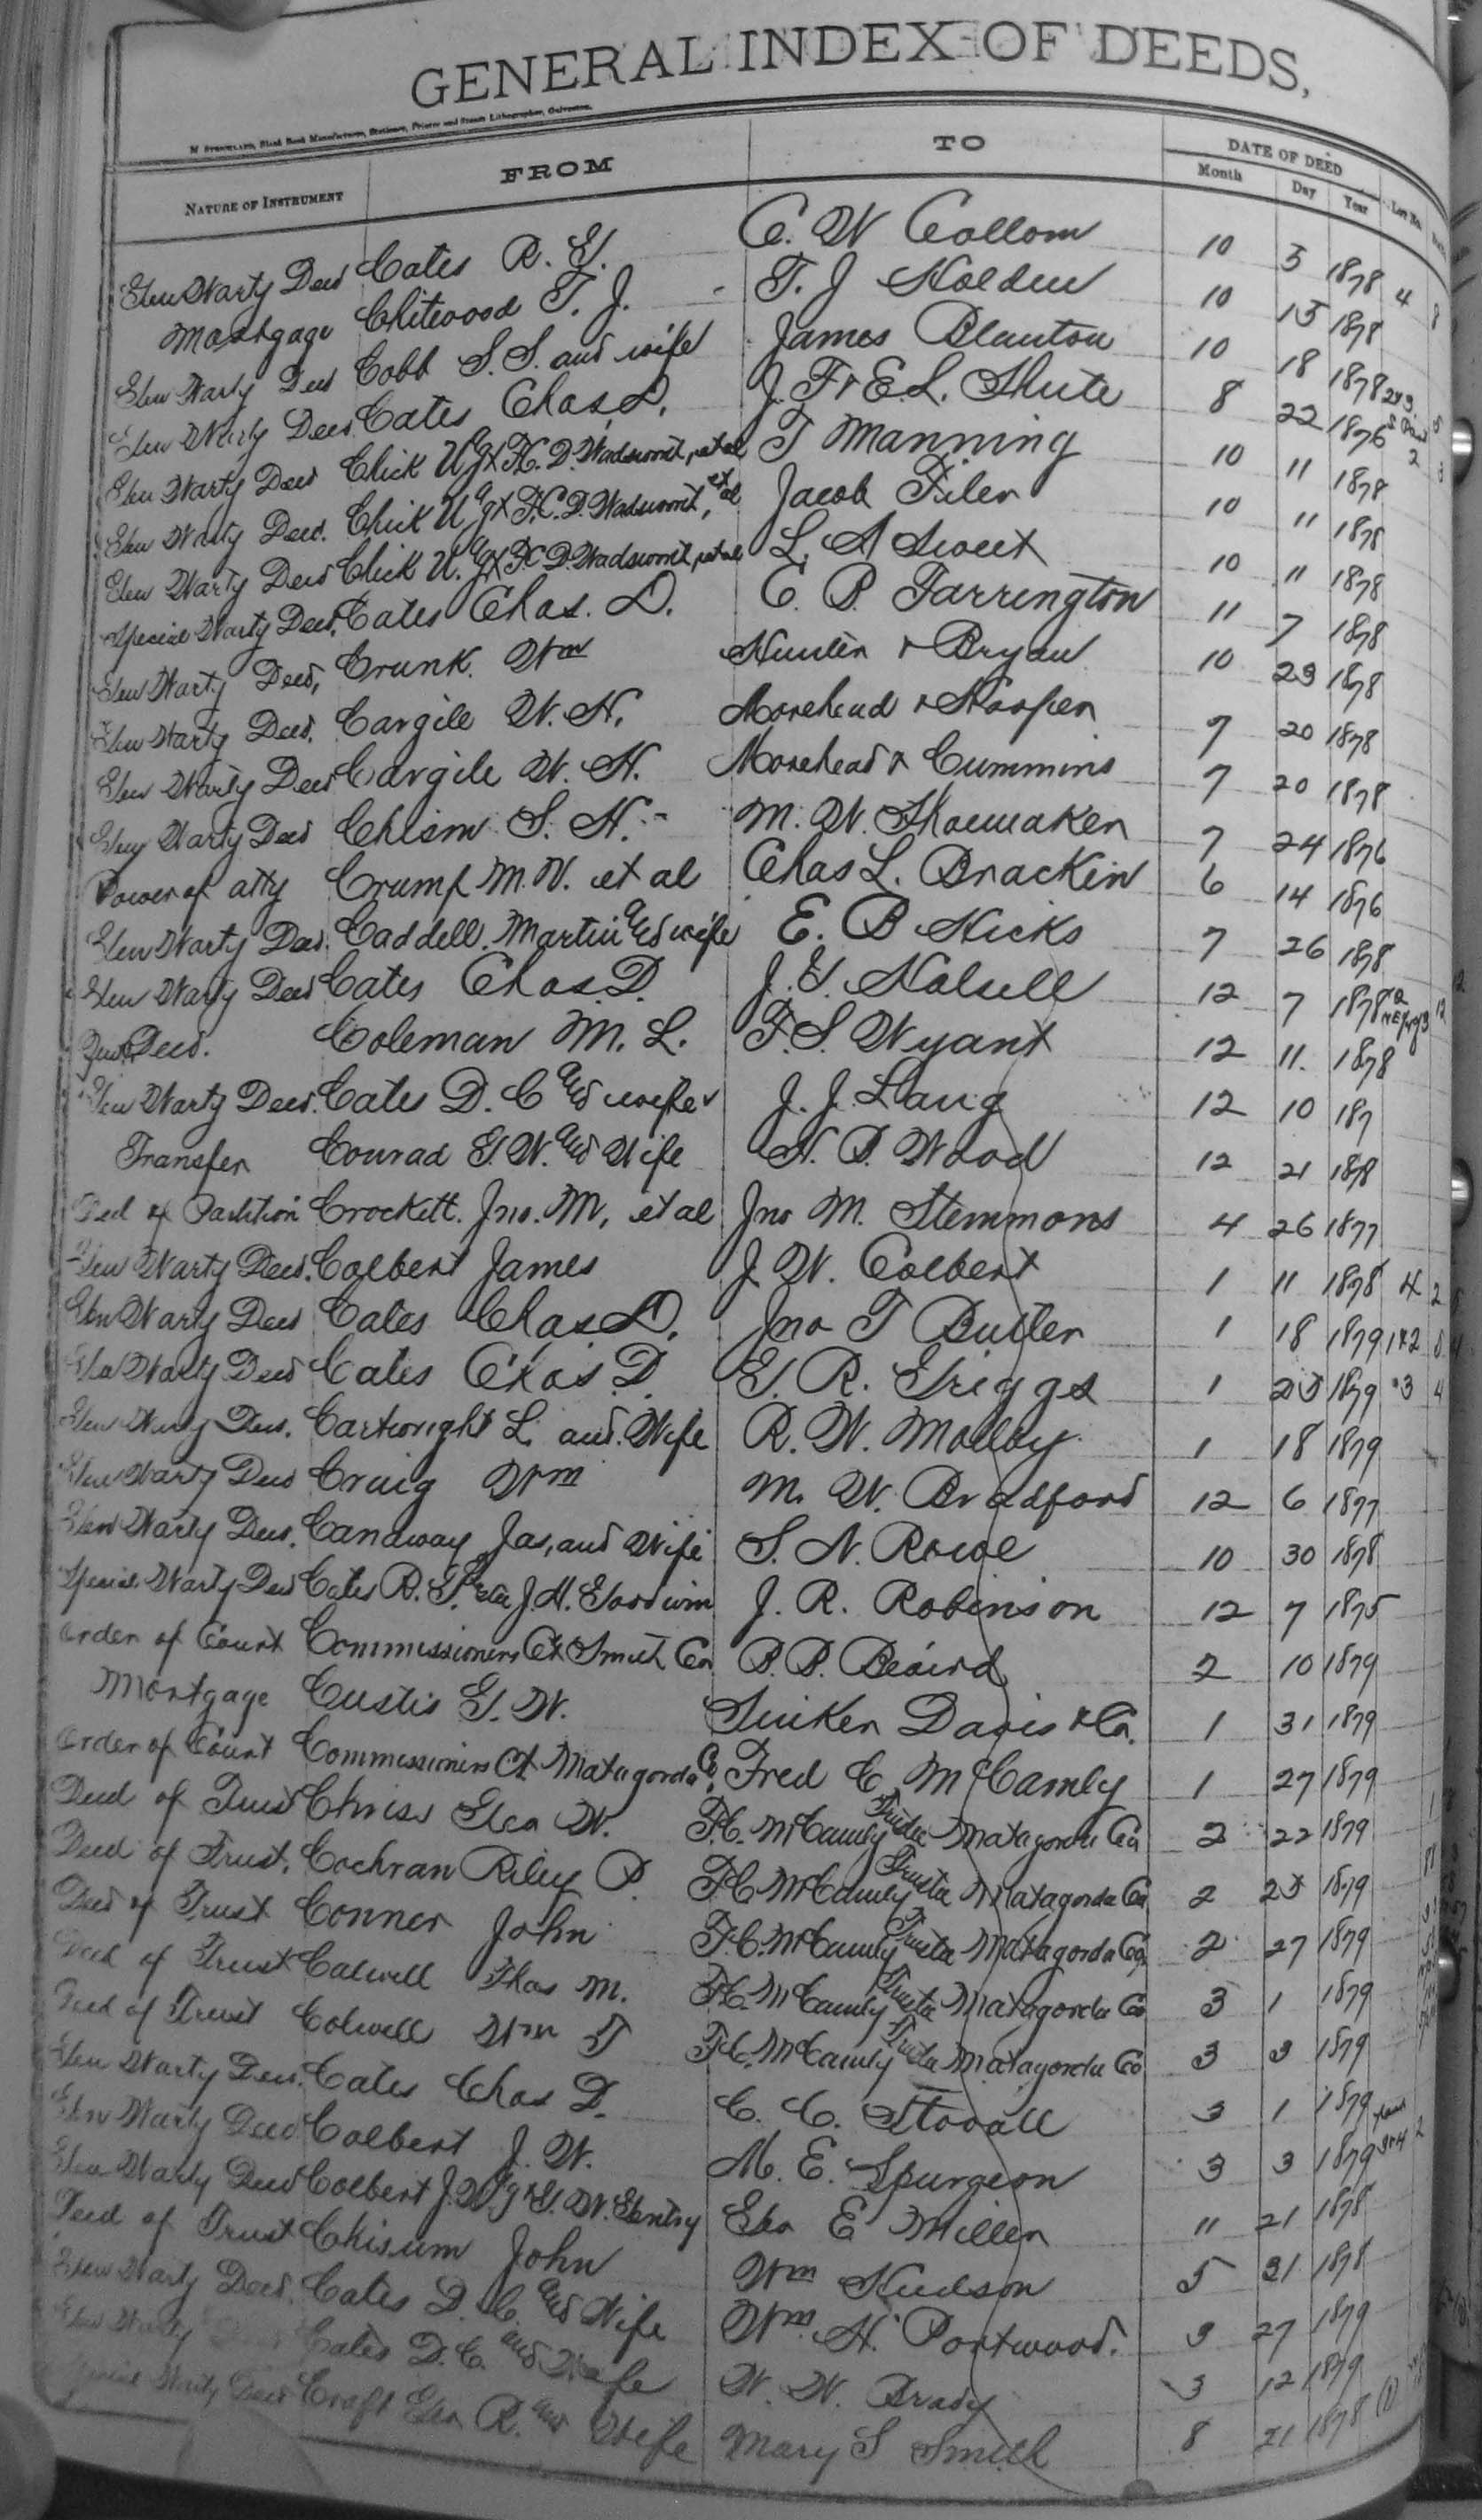 GENERAL INDEX OF DEEDS,
M. STRICKLAND, Blank Book Manufacturer, Stationer, Printer and Steam Lithographer, Galveston.
NATURE OF INSTRUMENT FROM TO DATE OF DEED
Month Day Year Lot No.
Gen Warty Deed Cates R. G. C. W Collom 10 5 1878 4 8
Mortgage Chitwood T. J. T. J Holden 10 15 1878
Gen Warty Deed Cobb S. S. and wife James Blanton 10 18 1878 2&3 5
Gen Warty Deed Cates Chas. D. J. F & E. L. Shute 8 22 1876 2 3
Gen Warty Deed Chick U G & H. D. Wadsworth, et al T Manning 10 11 1878
Gen Warty Deed. Chick U G & D. Wadsworth, et al Jacob Filer 10 11 1878
Gen Warty Deed Chick U. G & D. Wadsworth, et al L. A Sweet 10 11 1878
Special Warty Deed, Cates Chas. D. C. B. Farrington 11 7 1878
Gen Warty Deed, Crunk. Wm Hunter & Bryan 10 29 1878
Gen Warty Deed. Cargile W. H. Morehead & Harper 9 20 1878
Gen Warty Deed Cargile W. H. Morehead & Cummins 7 20 1878
Gen Warty Deed Chism S. H. M. W. Shoemaker 7 24 1876
Power of atty Crump M. V. et al Chas L. Brackin 6 14 1876
Gen Warty Deed. Caddell. Martin and wife E. B Hicks 7 26 1878
Gen Warty Deed Cates Chas. D. J. G. Halsell 12 7 1878 12
Deed. Coleman M. L. F. S. Wyant 12 11. 1878
Gen Warty Deed. Cates D. C and wife J. J. Lang 12 10 187
Transfer Conrad G. W. and Wife H. P. Wood 12 21 1878
Deed of Partition Crockett. Jno. M, et al Jno M. Stemmons 4 26 1877
Gen Warty Deed. Colbert James J. W. Colbert 1 11 1878 4 2
Gen Warty Deed Cates Chas D. Jno T Butler 1 18 1879 1&2
Gen Warty Deed Cates Chas. D. G. R. Griggs 1 25 1879 3 4
Gen Warty Deed. Cartwright L. and Wife R. W. Molloy 1 18 1879
Gen Warty Deed Craig Wm M. W. Bradford 12 6 1877
Gen Warty Deed. Canaway Jas, and Wife S. N. Rowe 10 30 1878
Special Warty Deed Cates R. G. J. H. Goodwin J. R. Robinson 12 7 1875
Order of Court Commissioners Ct Smith Co B. B. Beaird 2 10 1879
Mortgage Custis G. W. Sinker Davis & Co. 1 31 1879
Order of Court Commissioners Ct Matagorda Co, Fred C McCamly 1 27 1879
Deed of Trust Geo W. F. C. McCamly Trustee Matagorda Co 2 22 1879
Deed of Trust, Cochran Riley P. F. C McCamly Trustee Matagorda Co 2 25 1879
Deed of Trust Conner John F. C. McCamly Trustee Matagorda Co 2 27 1879
Deed of Trust Calwell Thos M. F. C. McCamly Trustee Matagorda Co 3 1 1879
Deed of Trust Colwell Wm T F. C. McCamly Trustee Matagorda Co 3 3 1879
Gen Warty Deed. Cates Chas D. C. C. Stovall 3 1 1879
Gen Warty Deed Colbert J. W. M. E. Spurgeon 3 3 1879 3&4 2
Gen Warty Deed Colbert J. W & G. W. Gentry Geo E Miller 11 21 1878
Deed of Trust Chisum John Wm Hudson 5 31 1878
Gen Warty Deed. Cates D. C. and Wife Wm. H. Portwood. 3 27 1879
Gen Warty Deed Cates D. C. and Wife W. W. Brady 3 12 1879
Special Warty Deed Craft Geo R. and Wife Mary S Smith 8 21 1878